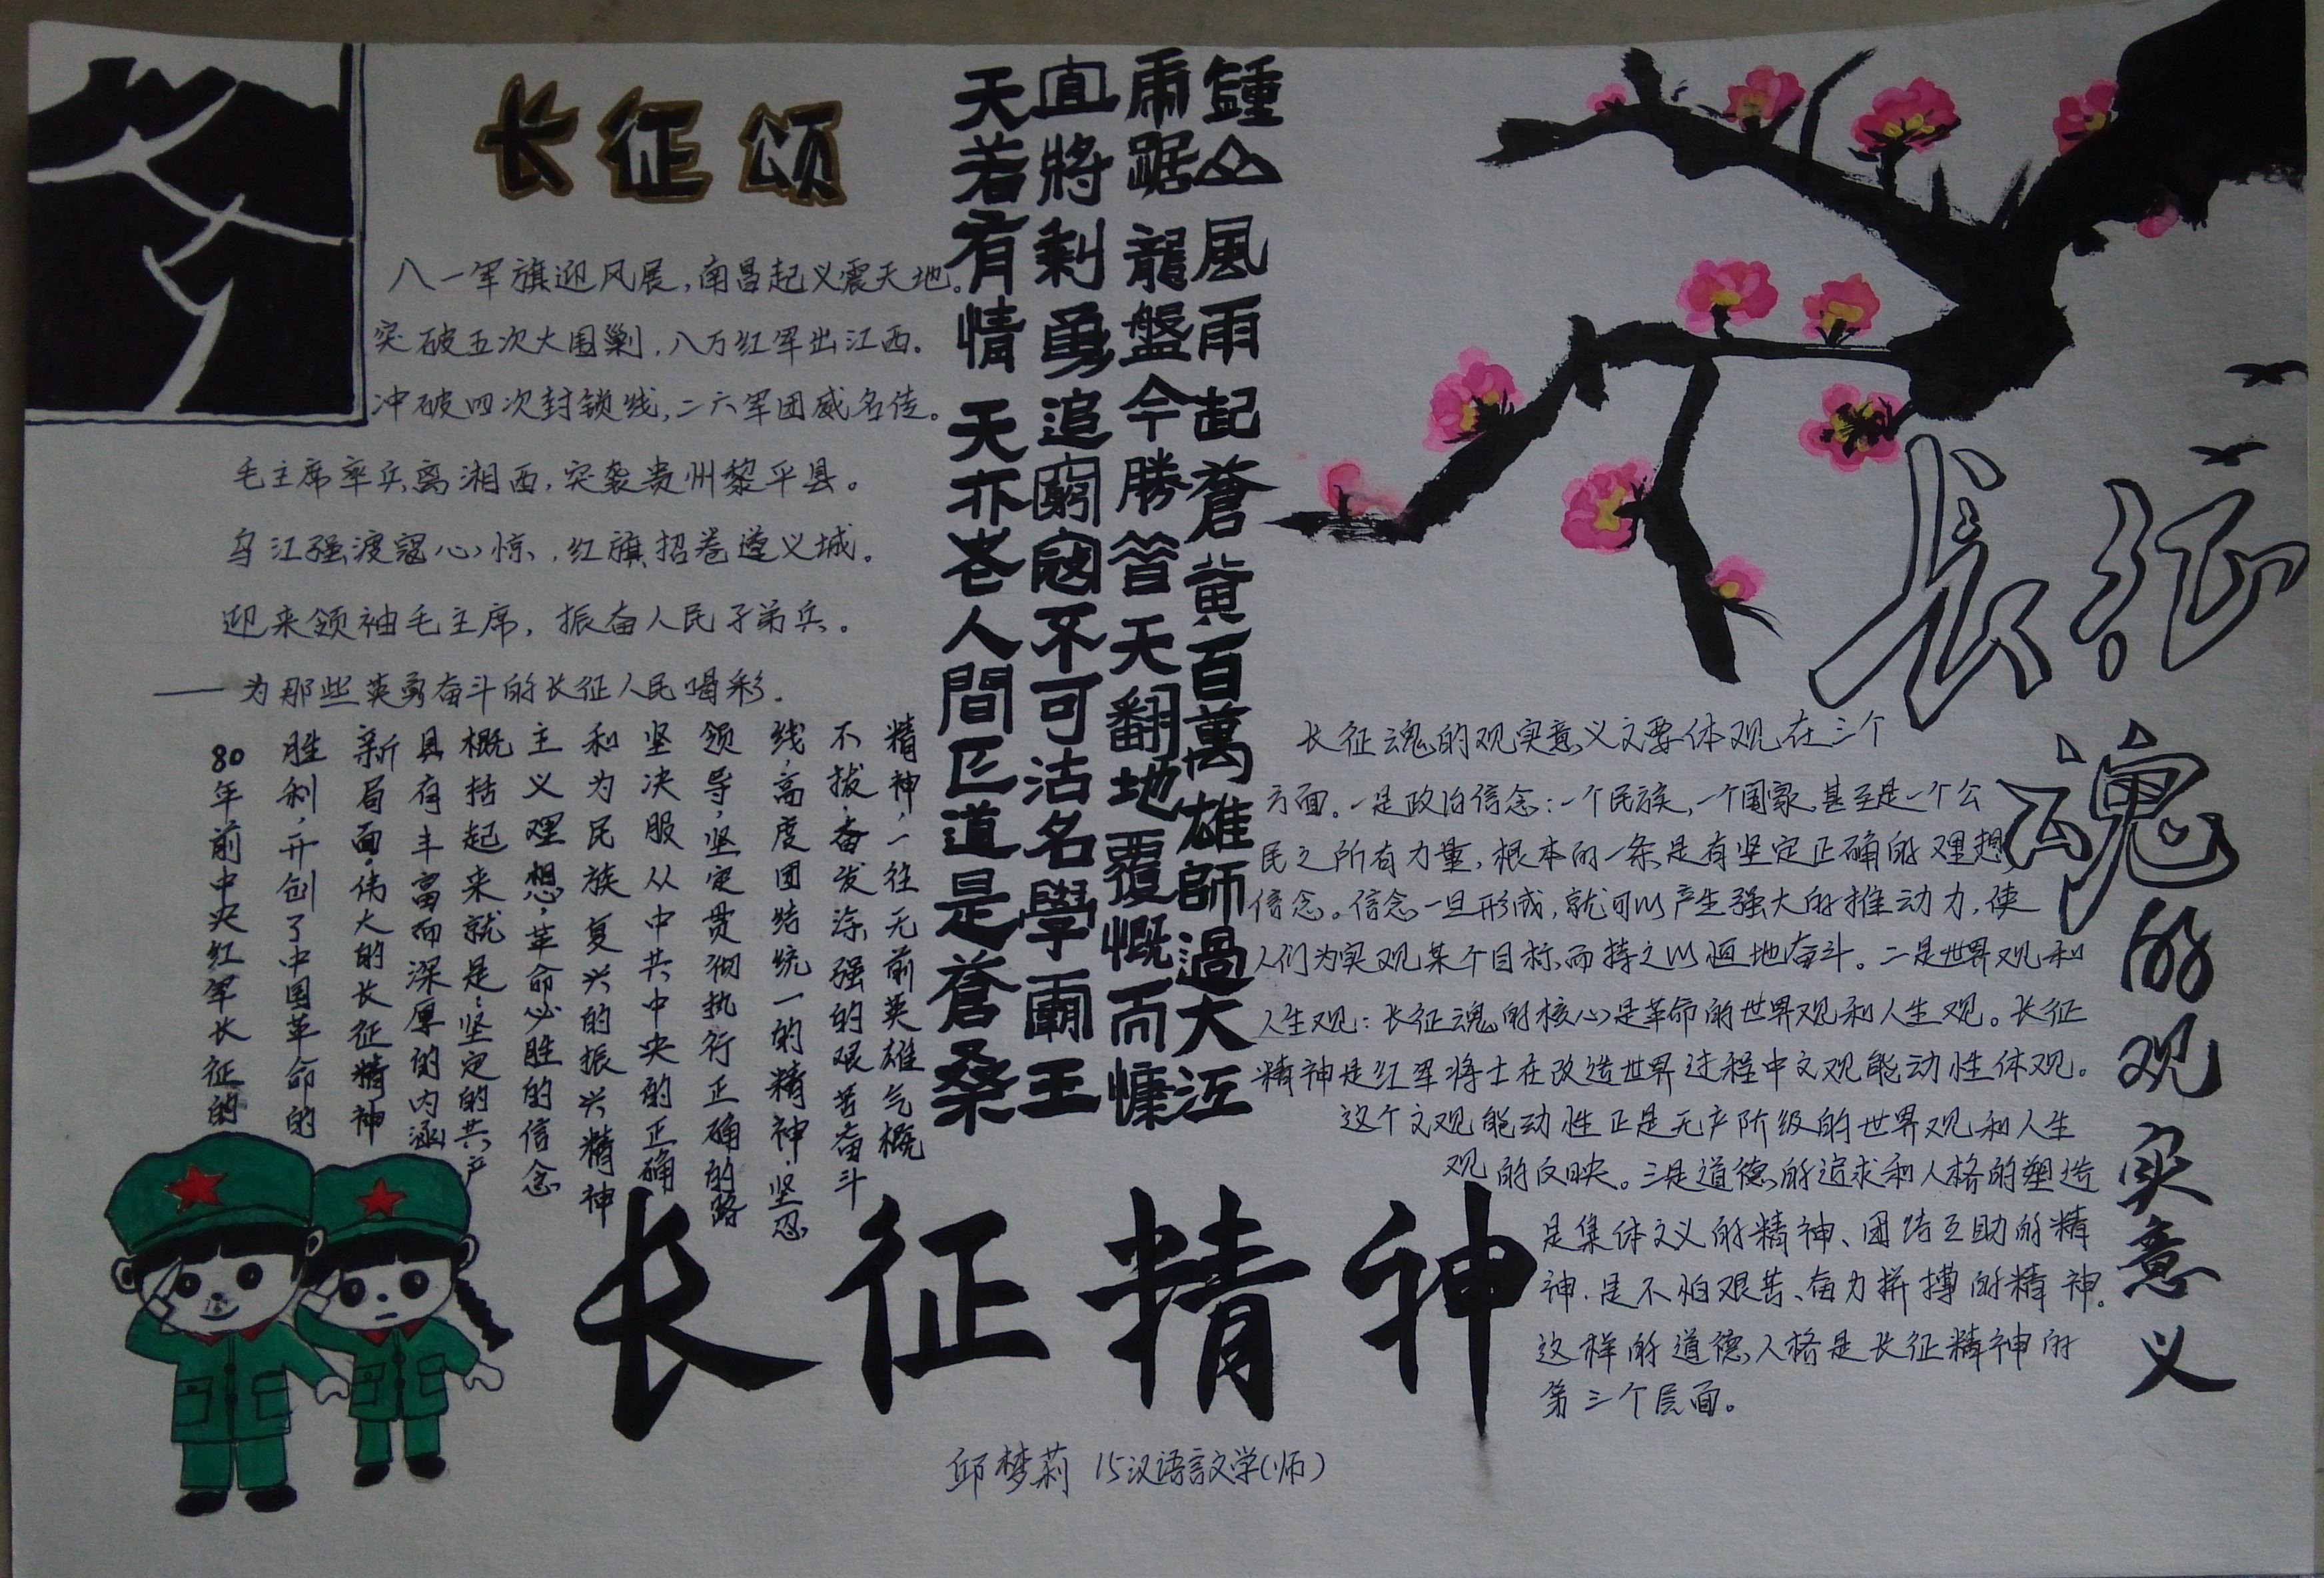 长征颂
八一军旗迎风展,南昌起义震天地。
突破五次大围剿,八万红军出江西。
冲破四次封锁线,二六军团威名传。
毛主席率兵离湘西,突袭贵州黎平县。
乌江强渡寇心惊,红旗招卷遵义城。
迎来领袖毛主席,振奋人民子弟兵。
——为那些英勇奋斗的长征人民喝彩.
鍾山風雨起蒼黄百萬雄師過大江
虎踞龍盤今勝昔天翻地覆慨而慷
宜將剩勇追窮寇不可沽名學霸王
天若有情天亦老人間正道是蒼桑
80年前中央红军长征的
胜利,开创了中国革命的
新局面。伟大的长征精神
具有丰富而深厚的内涵
概括起来就是:坚定的共产
主义理想,革命必胜的信念
和为民族复兴的振兴精神
坚决服从中共中央的正确
领导,坚定贯彻执行正确的路
线,高度团结统一的精神,坚忍
不拔,奋发涂强的艰苦奋斗
精神,一往无前英雄气概
长征精神
长征魂的观实意义
长征魂的观实意义文要体观在三个
方面。一是政治信念:一个民族,一个国家,甚至是一个公
民之所有力量,根本的一条是有坚定正确的理想
信念。信念一旦形成,就可以产生强大的推动力,使
人们为实观某个目标,而持之以恒地奋斗。二是世界观和
人生观:长征魂的核心是革命的世界观和人生观。长征
精神是红军将士在改造世界过程中文观能动性体观。
这个文观能动性正是无产阶级的世界观和人生
观的反映。三是道德的追求和人格的塑造
是集体文义的精神、团结互助的精
神.是不怕艰苦、奋力拼搏的精神。
这样的道德人格是长征精神的
第三个层面。
邱梦莉 15汉语言文学(师)